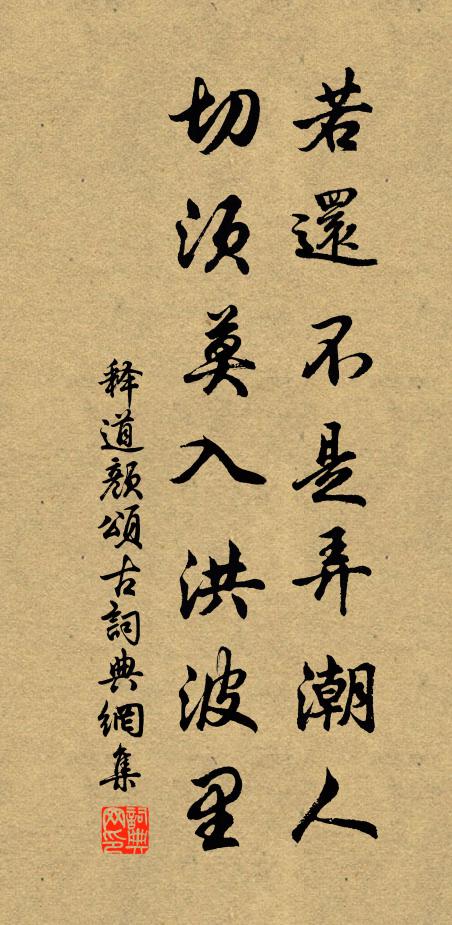 若還不是弄潮人
切須莫入洪波里
释道顏頌古詞典網集
詞典網印